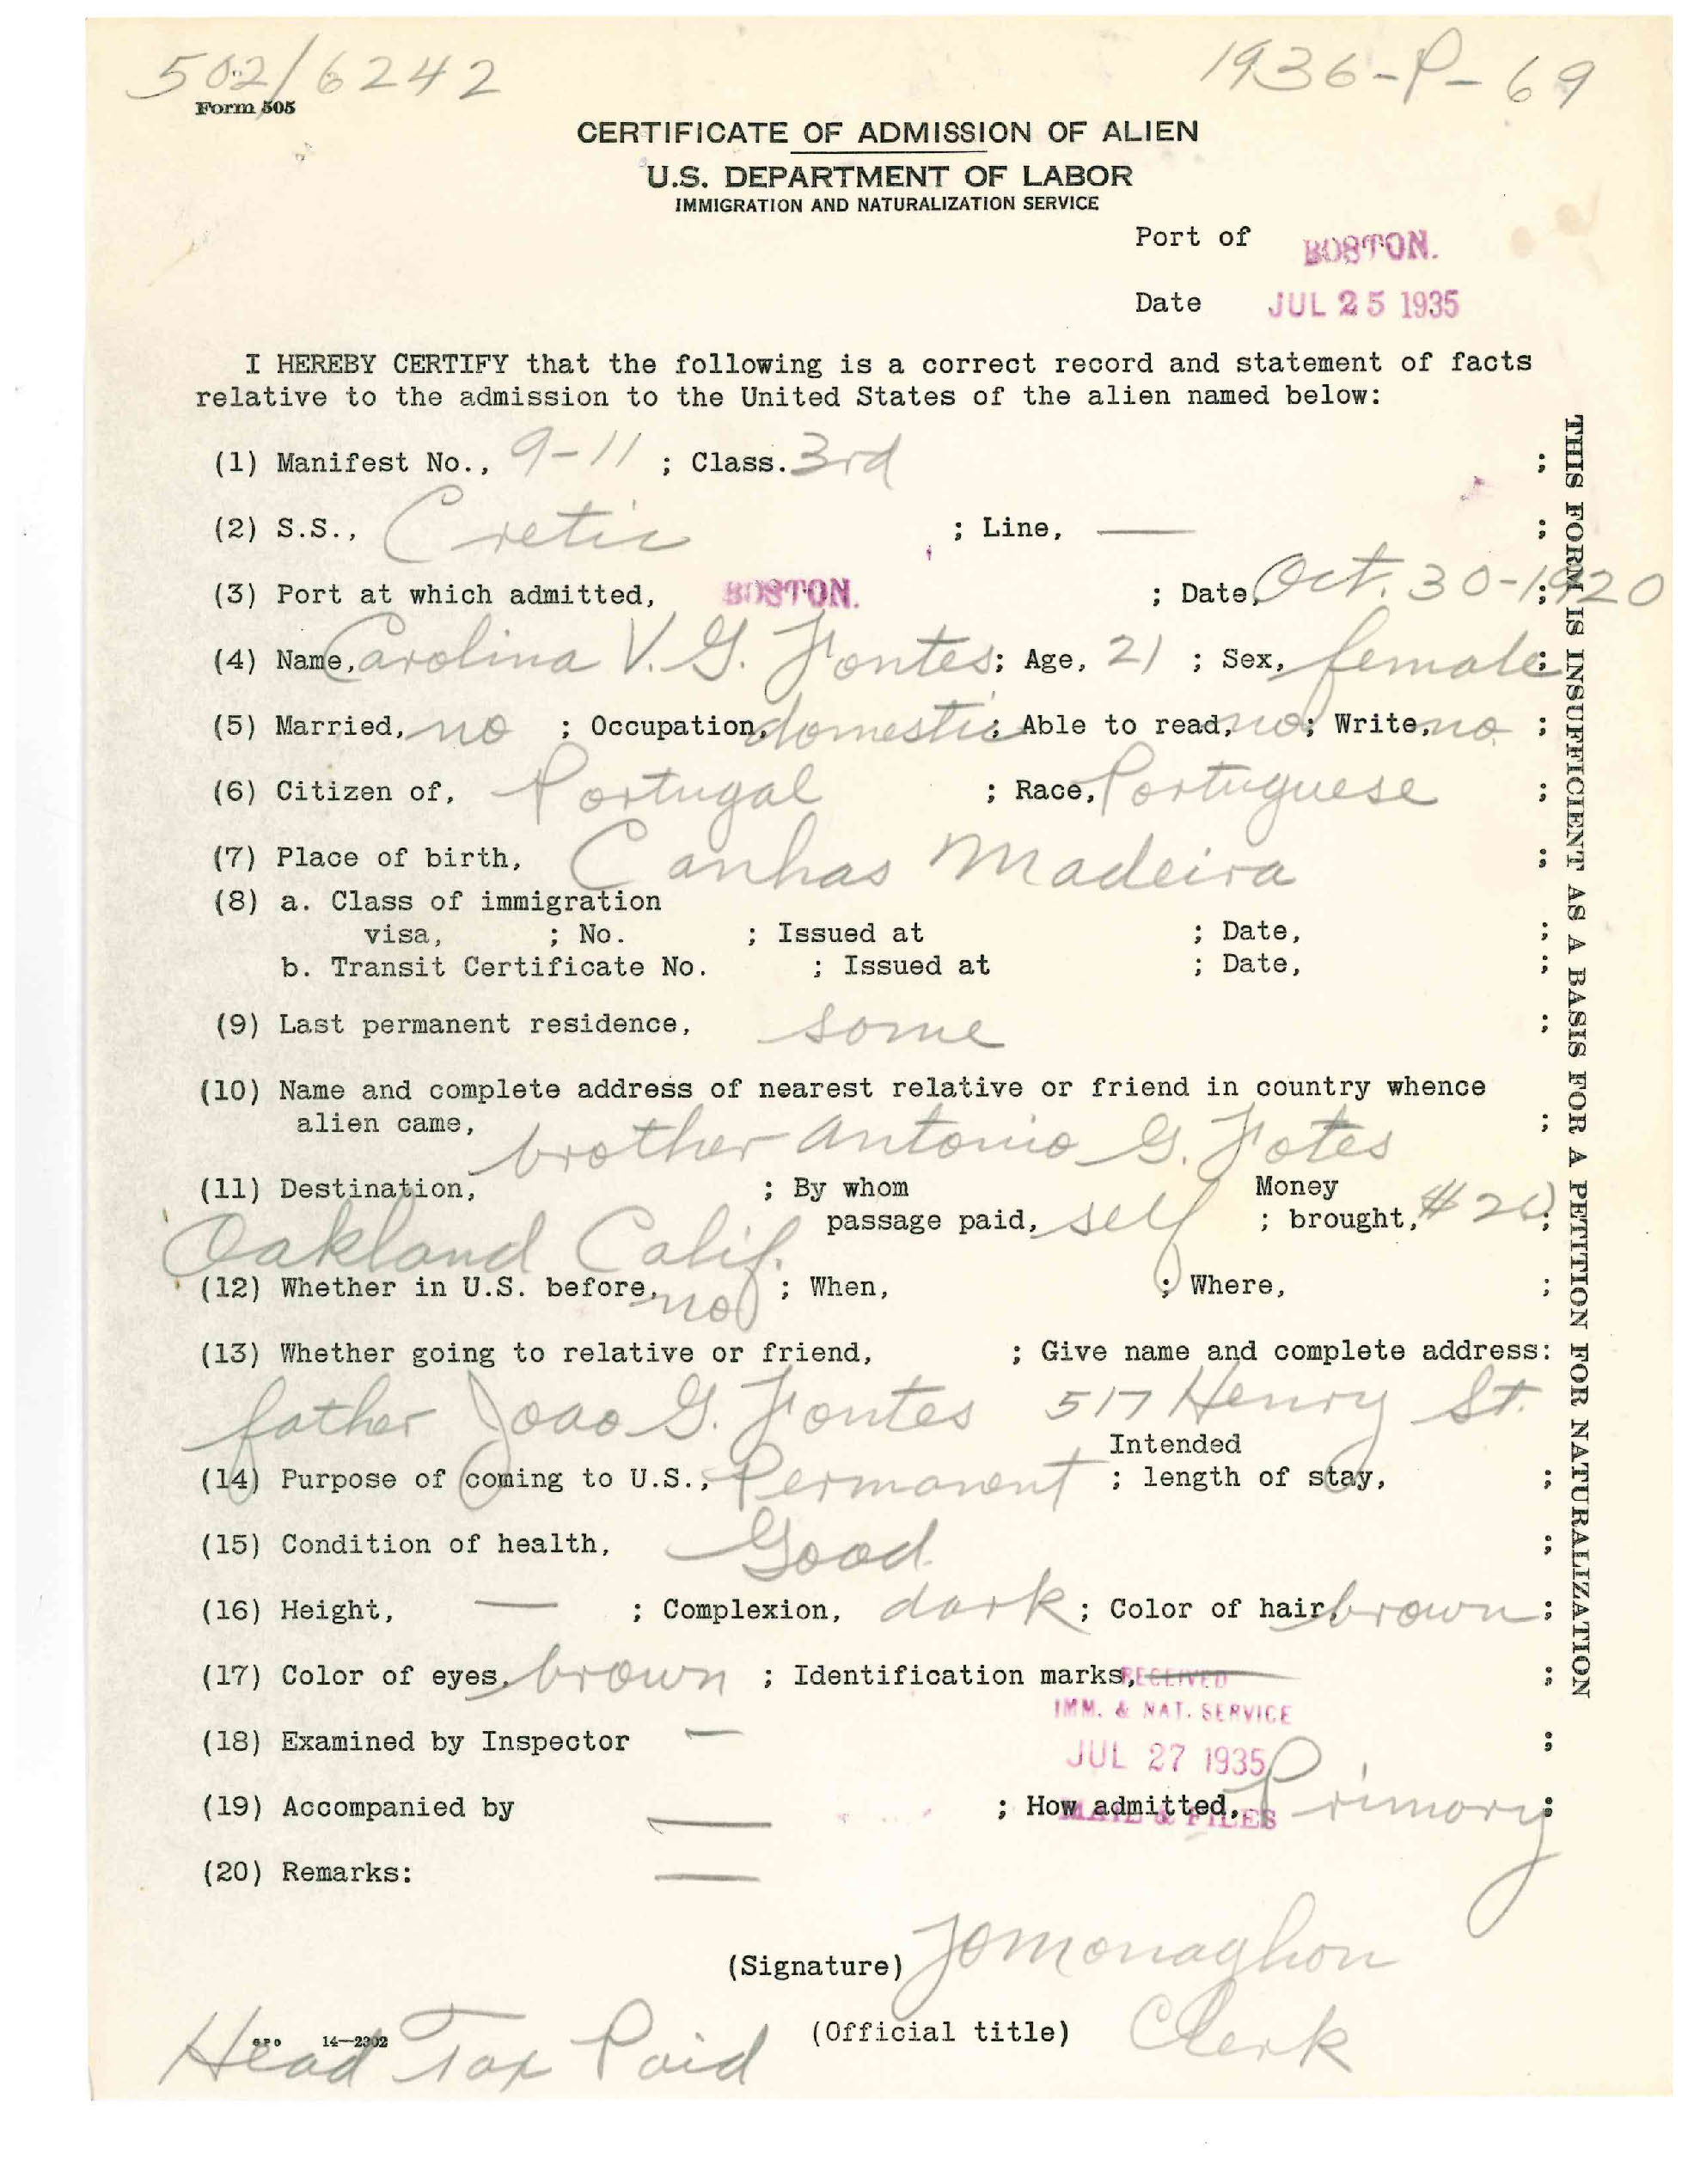 502/6242
1936-P-69
Form 505
CERTIFICATE OF ADMISSION OF ALIEN
U.S. DEPARTMENT OF LABOR
IMMIGRATION AND NATURALIZATION SERVICE
Port of BOSTON.
Date JUL 25 1935
I HEREBY CERTIFY that the following is a correct record and statement of facts
relative to the admission to the United States of the alien named below:
(1) Manifest No., 9-11 ; Class. 3rd ;
(2) S.S., Cretic ; Line, — ;
(3) Port at which admitted, BOSTON. ; Date, Oct. 30-1920 ;
(4) Name, Carolina V. G. Fontes ; Age, 21 ; Sex, female ;
(5) Married, no ; Occupation, domestic ; Able to read, no ; Write, no ;
(6) Citizen of, Portugal ; Race, Portuguese ;
(7) Place of birth, Canhas Madeira ;
(8) a. Class of immigration
visa, ; No. ; Issued at ; Date, ;
b. Transit Certificate No. ; Issued at ; Date, ;
(9) Last permanent residence, some ;
(10) Name and complete address of nearest relative or friend in country whence
alien came, brother Antonio G. Fotes ;
(11) Destination, ; By whom Money
passage paid, self ; brought, #20 ;
Oakland Calif.
(12) Whether in U.S. before, no ; When, ; Where, ;
(13) Whether going to relative or friend, ; Give name and complete address:
father Joao G. Fontes 517 Henry St.
Intended
(14) Purpose of coming to U.S., Permanent ; length of stay, ;
(15) Condition of health, Good ;
(16) Height, — ; Complexion, dark ; Color of hair, brown ;
(17) Color of eyes, brown ; Identification marks, — ;
RECEIVED
IMM. & NAT. SERVICE
(18) Examined by Inspector — ;
JUL 27 1935
(19) Accompanied by — ; How admitted, Primary ;
MAIL & FILES
(20) Remarks: —
(Signature) JOMonaghan
(Official title) Clerk
GPO 14—2302
Head Tax Paid
THIS FORM IS INSUFFICIENT AS A BASIS FOR A PETITION FOR NATURALIZATION